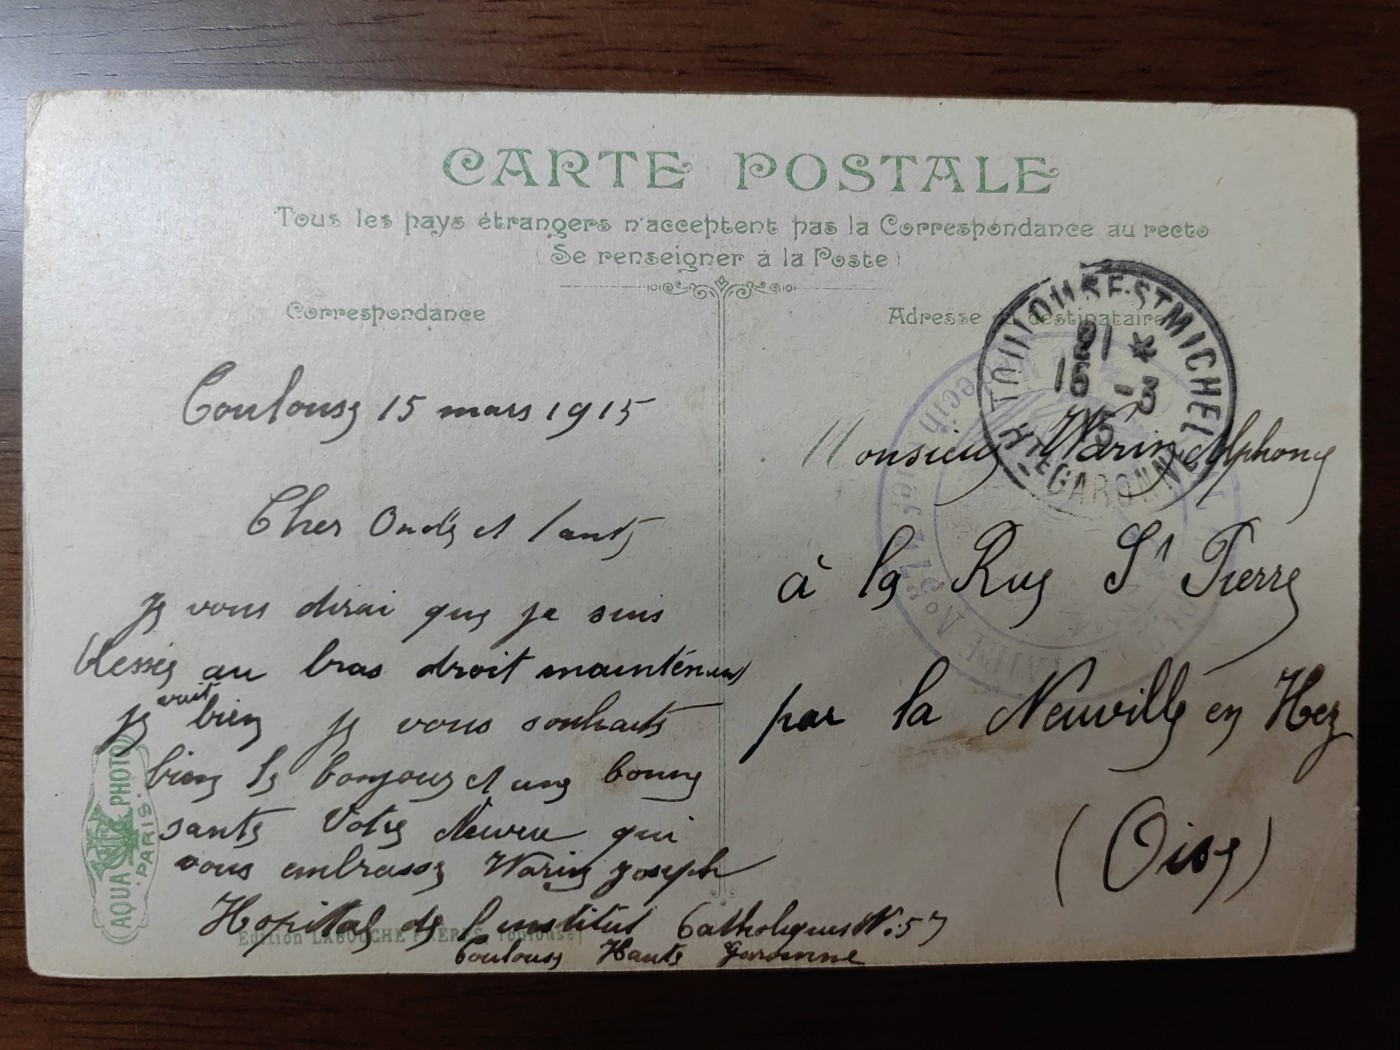 CARTE POSTALE
Tous les pays étrangers n'acceptent pas la Correspondance au recto
(Se renseigner à la Poste)
Correspondance
Adresse du destinataire
TOULOUSE-ST MICHEL
21 *
15 - 3
15
HTE GARONNE
Toulouse 15 mars 1915
Cher Oncle et Tante
Je vous dirai que je suis
blessée au bras droit mainténant
je vait bien je vous souhaite
bien le bonjour et une bonne
sante Votre Neveu qui
vous embrasse Warin Joseph
Hopital de l'institut Catholique N: 57
Toulouse Haute Garonne
Monsieur Warin Alphonse
à la Rue St Pierre
par la Neuville en Hez
(Oise)
AQUA PHOTO
PARIS
Edition LABOUCHE FRÈRES Toulouse